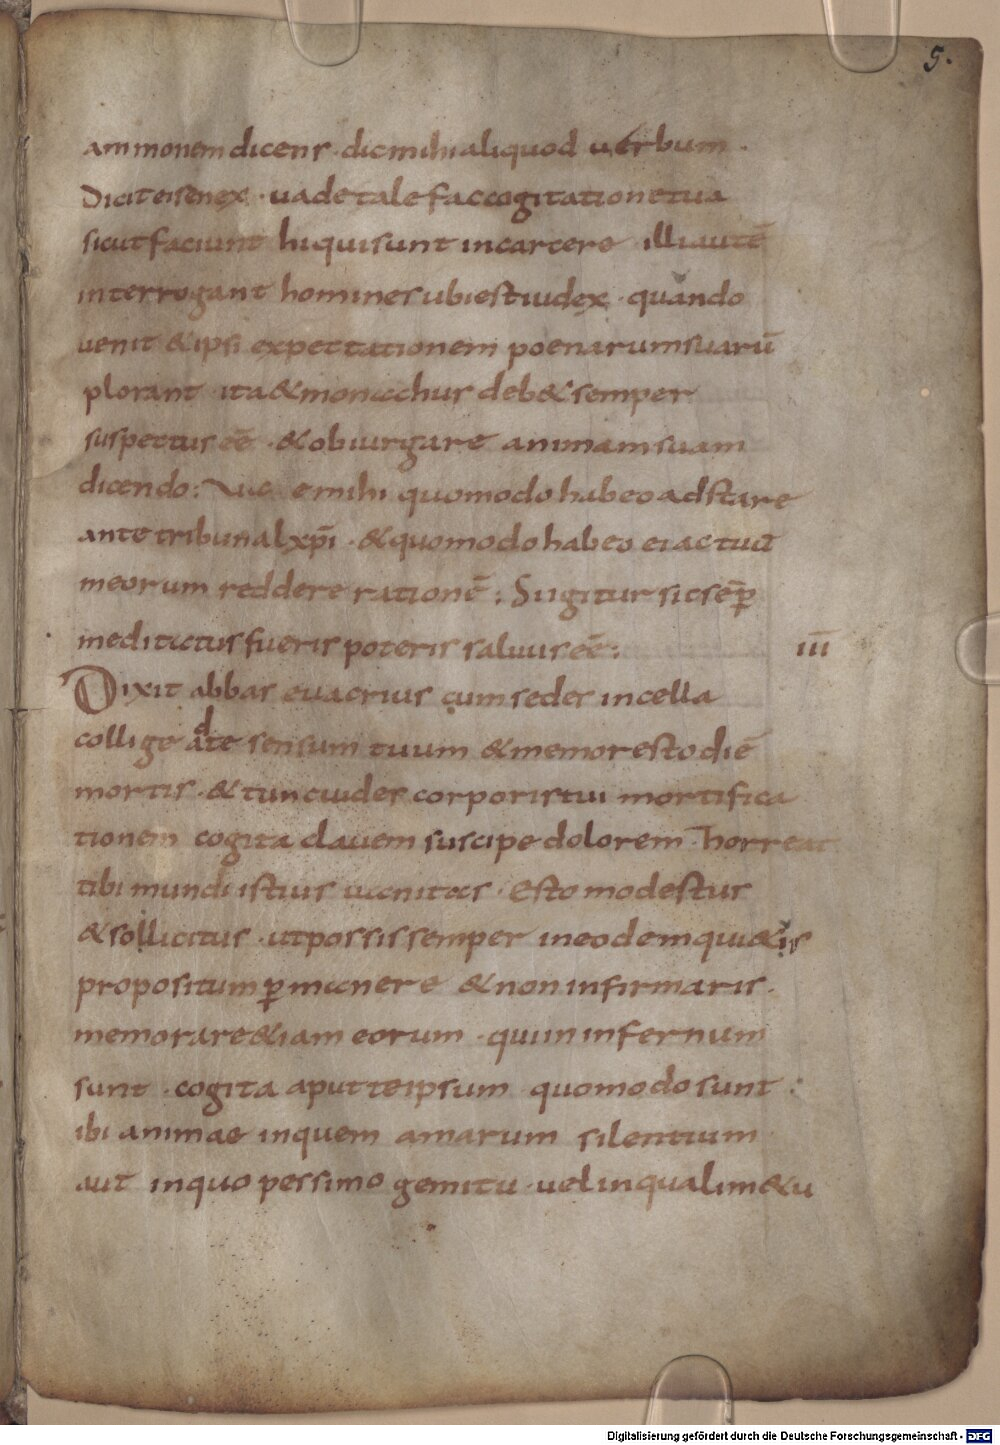 5.
ammonem dicens · dic mihi aliquod verbum ·
Dicit ei senex · vade tale fac cogitatione tua
sicut faciunt hi qui sunt in carcere illi autē
interrogant homines ubi est iudex · quando
venit & ipsi expectationem poenarum suarū
plorant · ita & monachus deb& semper
suspectus eē · & obiurgare animam suam
dicendo: Vae mihi quomodo habeo adstare
ante tribunal xp̄i · & quomodo habeo ei actuū
meorum reddere rationē; Si igitur sic sēp
meditatus fueris poteris salvus eē:
iii
Dixit abbas evacrius cum sedes in cella
collige ad te sensum tuum & memor esto diē
mortis · & tunc vides corporis tui mortifica
tionem cogita clavem suscipe dolorem · horreat
tibi mundi istius vanitas · Esto modestus
& sollicitus · ut possis semper in eodem qui&is
propositum ꝑmanere & non infirmaris ·
memorare &iam eorum · qui in infernum
sunt · cogita aput te ipsum quomodo sunt :
ibi animae in quem amarum silentium
aut in quo pessimo gemitu · vel in quali m&u
Digitalisierung gefördert durch die Deutsche Forschungsgemeinschaft - DFG